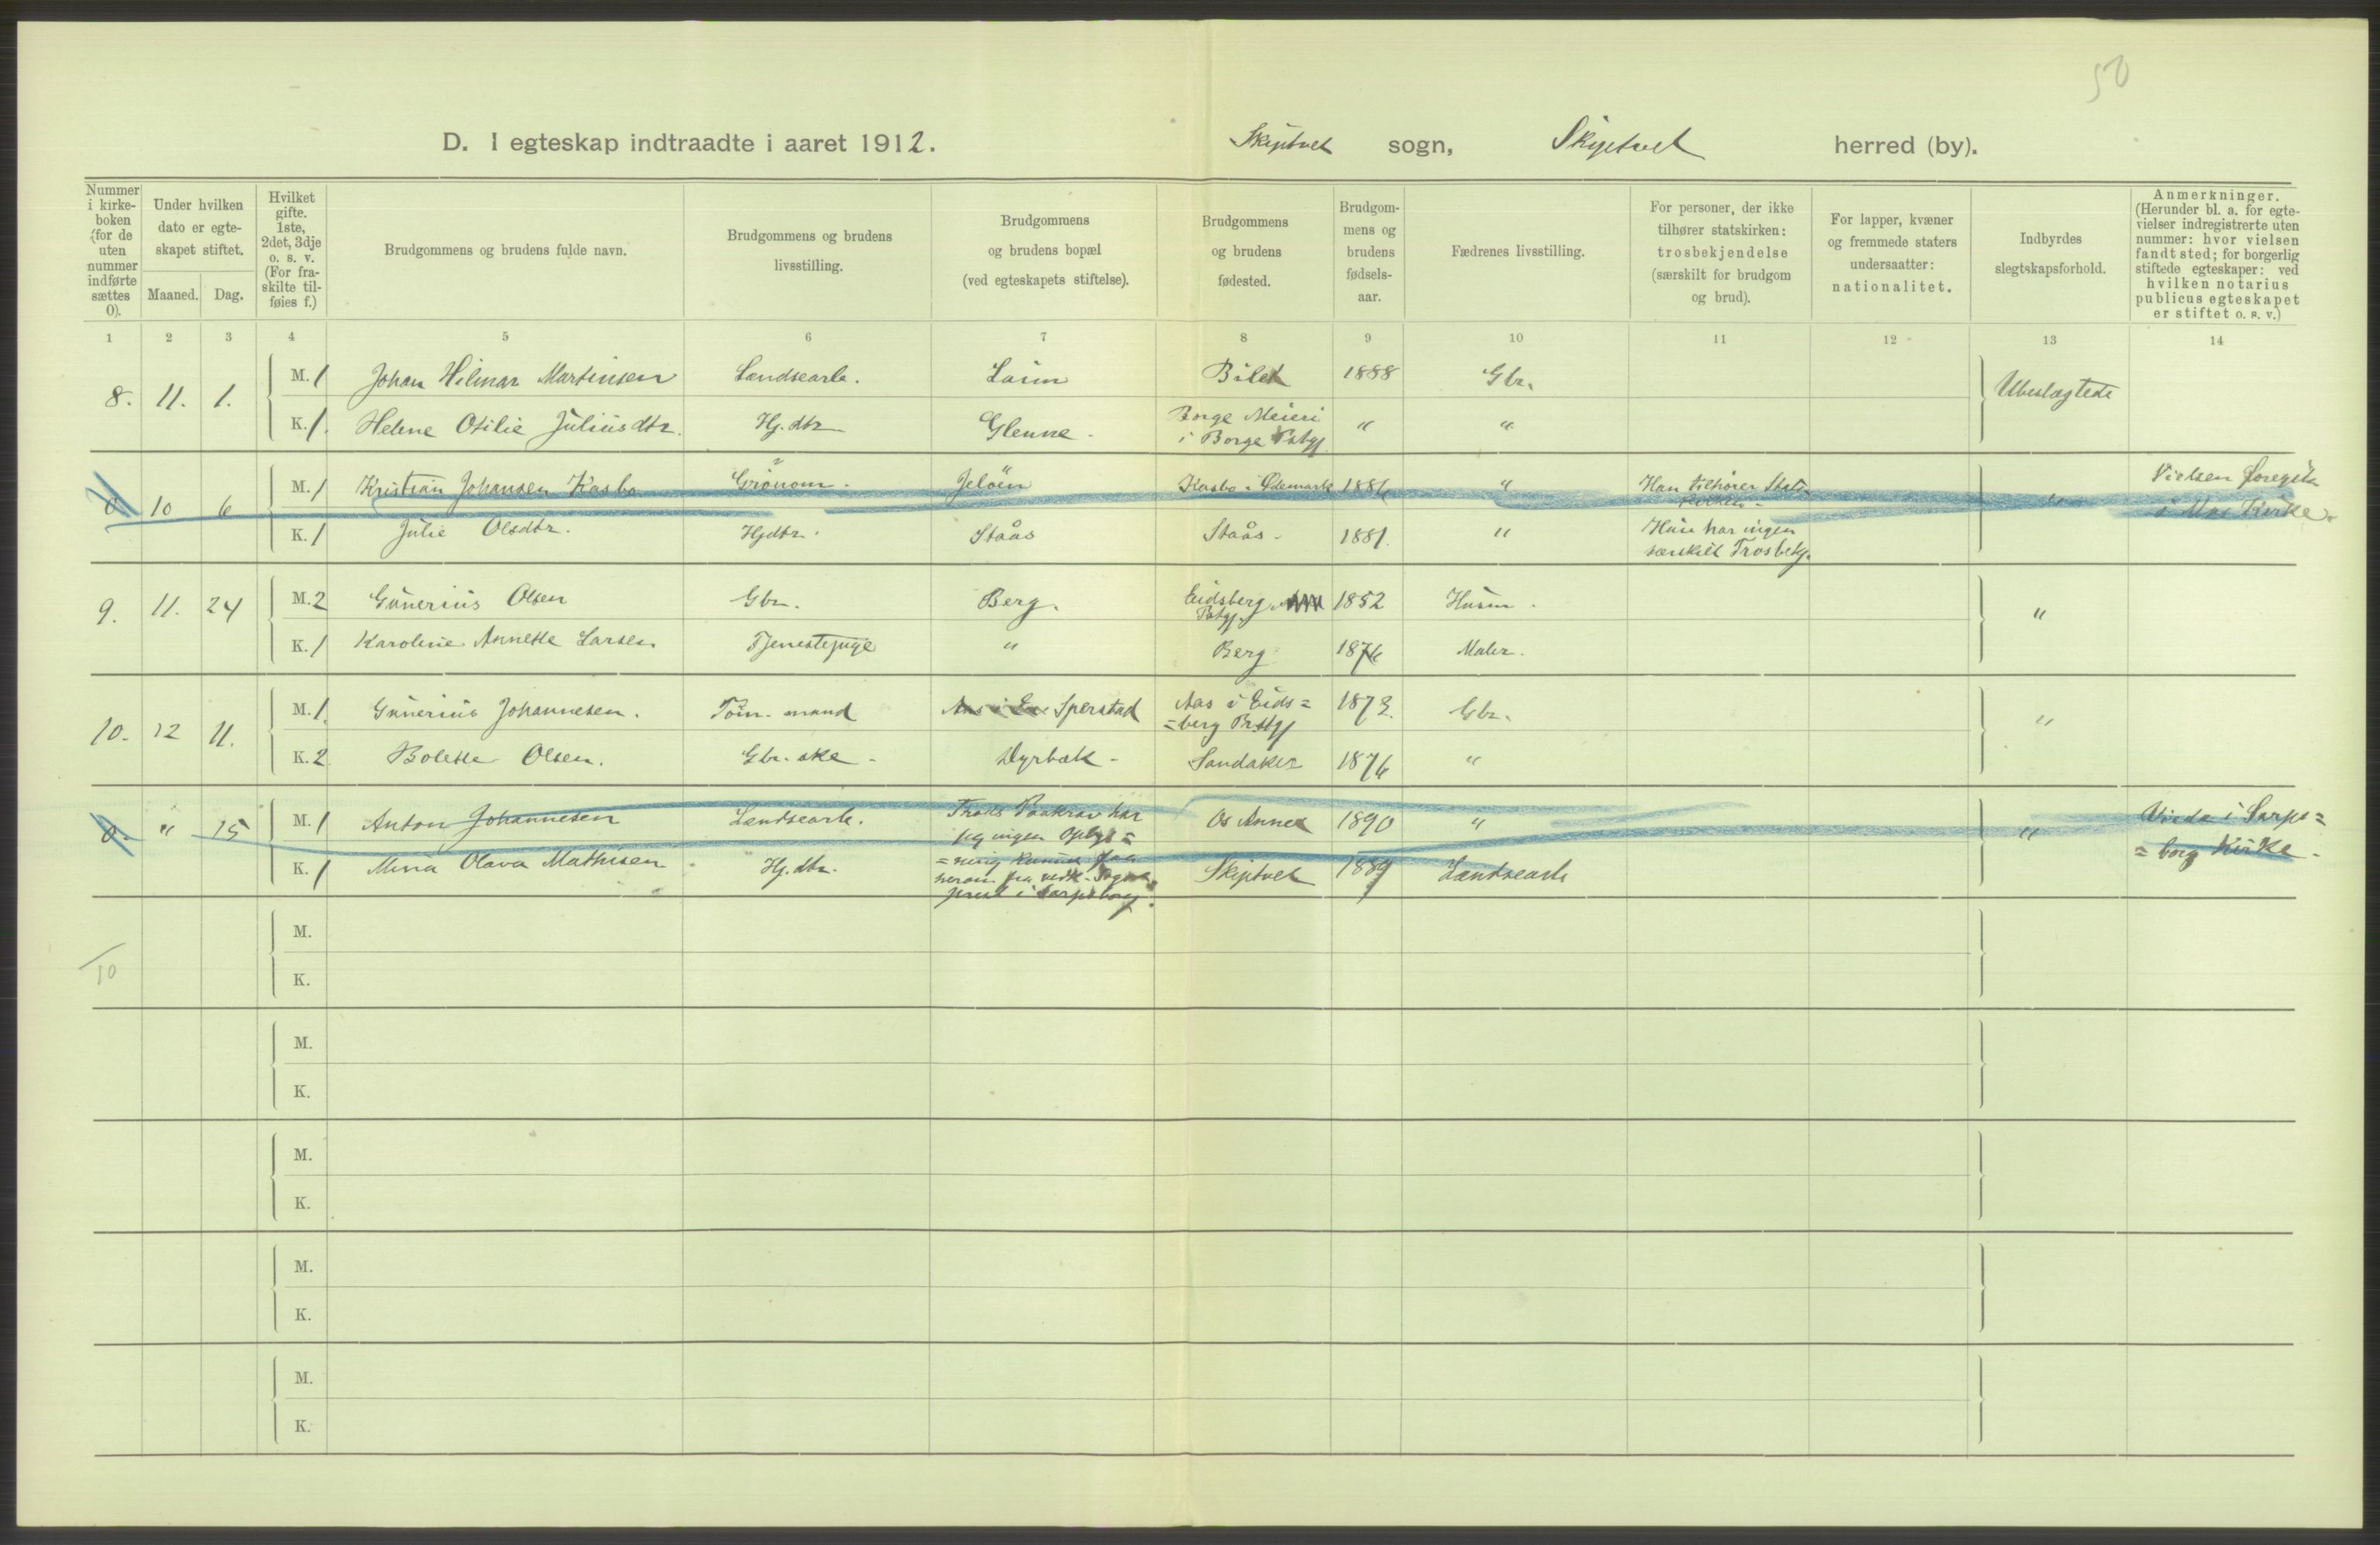 50
D. I egteskap indtraadte i aaret 1912. Skiptvet sogn, Skiptvet herred (by).
Nummer i kirke-boken (for de uten nummer indførte sættes 0).
Under hvilken dato er egte-skapet stiftet.
Maaned. Dag.
Hvilket gifte. 1ste, 2det, 3dje o. s. v. (For fra-skilte til-føies f.)
Brudgommens og brudens fulde navn.
Brudgommens og brudens livsstilling.
Brudgommens og brudens bopæl (ved egteskapets stiftelse).
Brudgommens og brudens fødested.
Brudgom-mens og brudens fødsels-aar.
Fædrenes livsstilling.
For personer, der ikke tilhører statskirken: trosbekjendelse (særskilt for brudgom og brud).
For lapper, kvæner og fremmede staters undersaatter: nationalitet.
Indbyrdes slegtskapsforhold.
Anmerkninger. (Herunder bl. a. for egte-vielser indregistrerte uten nummer: hvor vielsen fandt sted; for borgerlig stiftede egteskaper: ved hvilken notarius publicus egteskapet er stiftet o. s. v.)
1 2 3 4 5 6 7 8 9 10 11 12 13 14
8. 11. 1. M. 1 Johan Hilmar Martinsen Landsearb. Laim Bilet 1888 Gbr. Ubeslægtede
K. 1. Helene Otilie Juliusdtr. Hj. dtr Glenne - Borge Meieri i Borge Pstgj " "
0 10 6 M. 1 Kristian Johansen Kasbo Jeløen Kasbo i Ødemark 1886 " Han tilhører Stats- kirken - " Vielsen foregik i Mos Kirke.
K. 1 Julie Olsdtr. Hjdtr. Staås Staås - 1881 " Hun har ingen særskilt Trosbekj.
9. 11. 24 M. 2 Gunerius Olsen Gbr. Berg. Eidsberg Pstgj. 1852 Husm. "
K. 1 Karoline Annette Larsen Tjenestepige " Berg 1876 Maler.
10. 12 11. M. 1. Gunerius Johannesen. Tøm. mand Sperstad Aas i Eids= =berg Prstgj 1873. Gbr. "
K. 2. Bolette Olsen. Gbr. ske - Dyrbæk - Sandaker 1876 "
0. " 15 M. 1 Anton Johannesen Landsearb. Trods Paakrav har jeg ingen Oplys= =ning kunnet faa herom fra vedk. Sogne= prest i Sarpsborg. Os Annex 1890 " " Viede i Sarps= =borg Kirke.
K. 1 Mina Olava Mathisen Hj. dtr. Skiptvet 1889 Landsearb
10
M.
K.
M.
K.
M.
K.
M.
K.
M.
K.